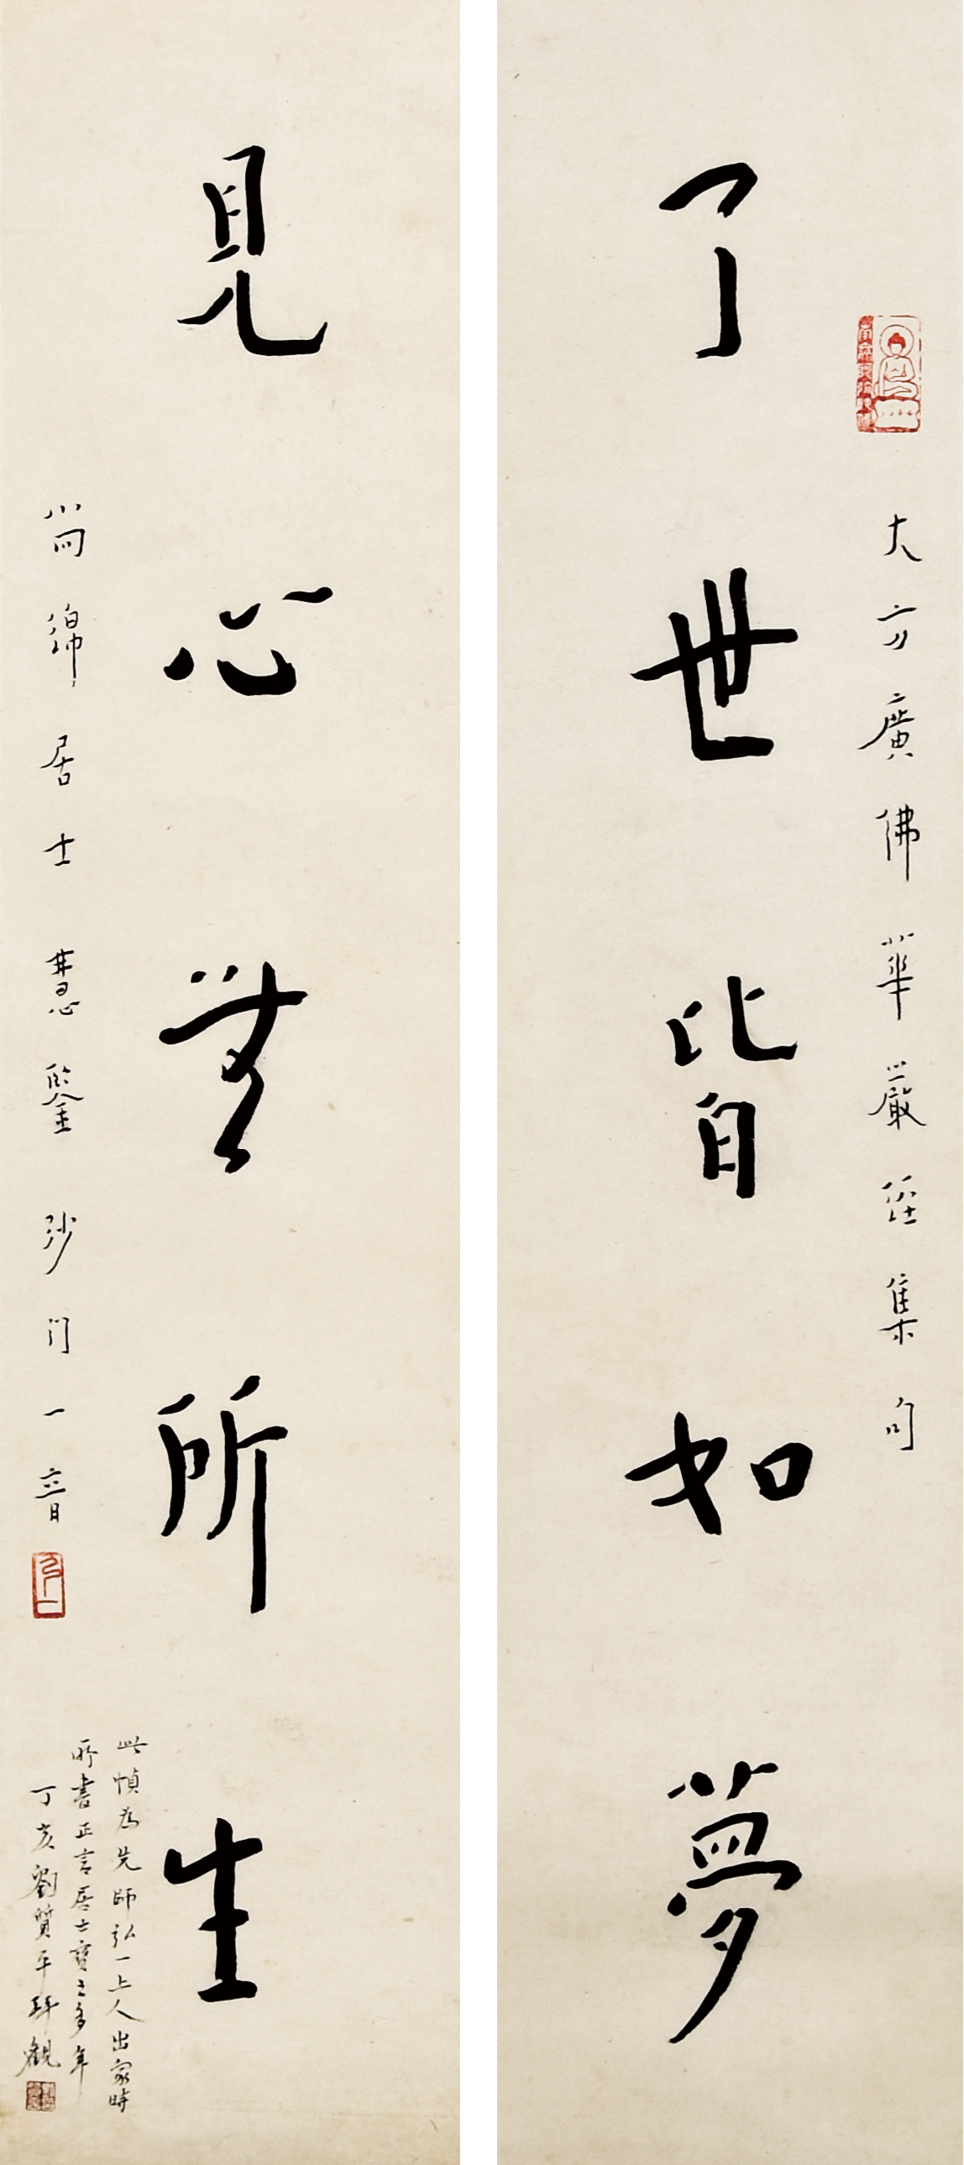 大方廣佛華嚴經集句
了世皆如夢
見心無所生
尚綿居士慧鑒沙门一音
此幀為先師弘一上人出家時
所書正言居士寶之多年
丁亥劉質平拜觀